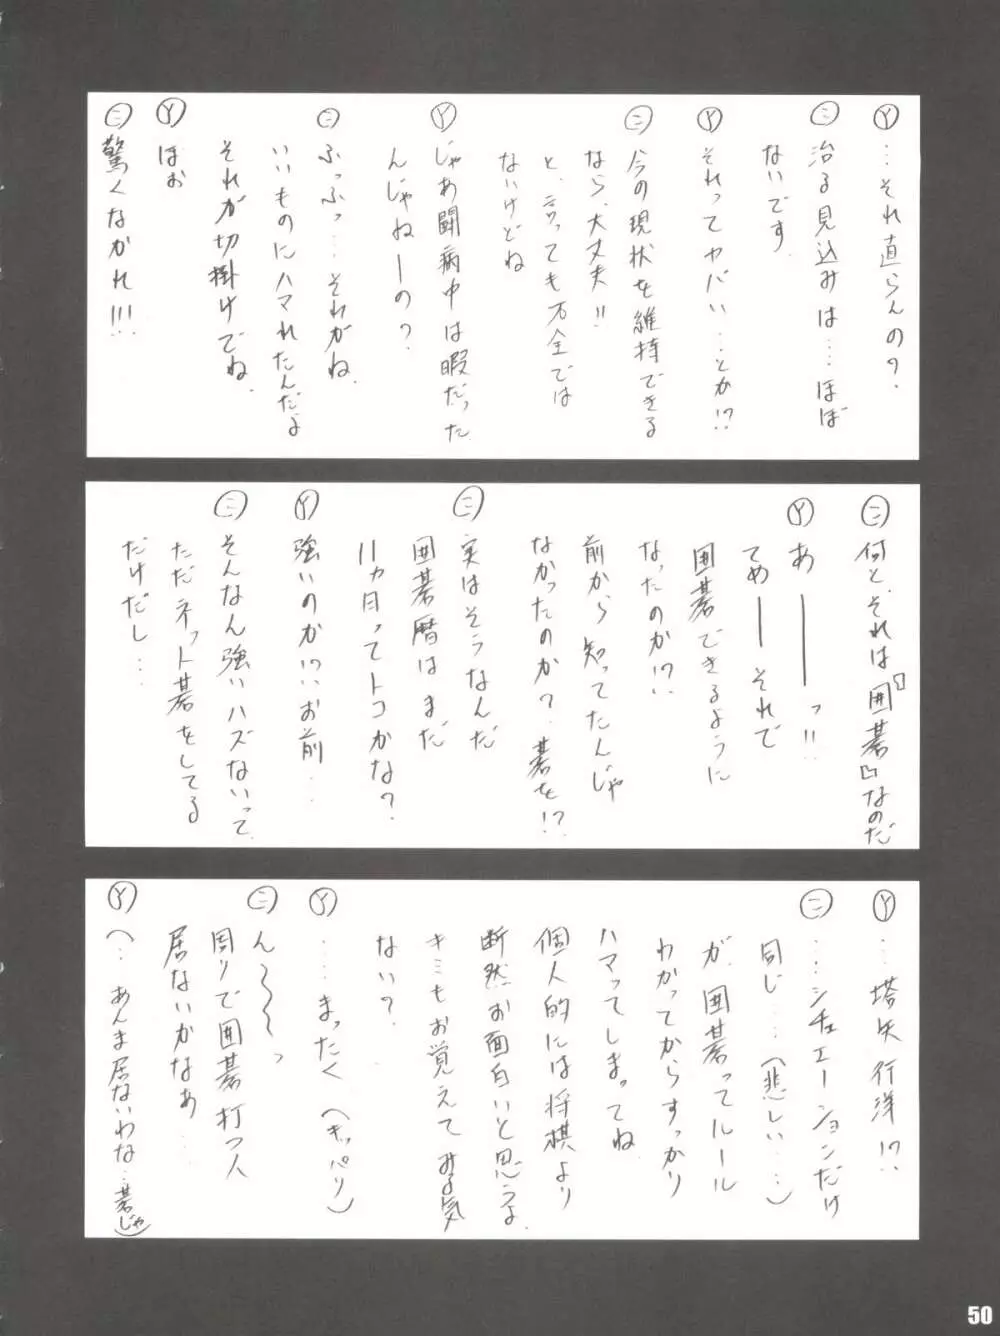 Ⓨ…それ直らんの？
㊁治る見込みは…ほぼ
ないです
Ⓨそれってヤバい…とか!?
㊁今の現状を維持できる
なら、大丈夫!!
と、言っても万全では
ないけどね
Ⓨじゃあ闘病中は暇だった
んじゃねーの？
㊁ふっふっ…それがね、
いいものにハマれたんだよ
それが切掛けでね、
Ⓨほぉ
㊁驚くなかれ!!!
㊁何と、それは『囲碁』なのだ
Ⓨあ――っ!!
てめーそれで
囲碁できるように
なったのか!?
前から知ってたんじゃ
なかったのか？碁を!?
㊁実はそうなんだ
囲碁暦はまだ
11ヵ月ってトコかな？
Ⓨ強いのか!?お前…
㊁そんなん強いハズないって、
ただネット碁をしてる
だけだし…
Ⓨ…塔矢行洋!?
㊁……シチュエーションだけ
同じ……（悲しい…）
が、囲碁ってルール
わかってからすっかり
ハマってしまってね、
個人的には将棋より
断然お面白いと思うよ、
キミもお覚えてみる気
ない？
Ⓨ……まったく（きっパリ）
㊁ん～～～っ
周りで囲碁打つ人
居ないかなぁ…
Ⓨ（…あんま居ないわな…碁じゃ）
50